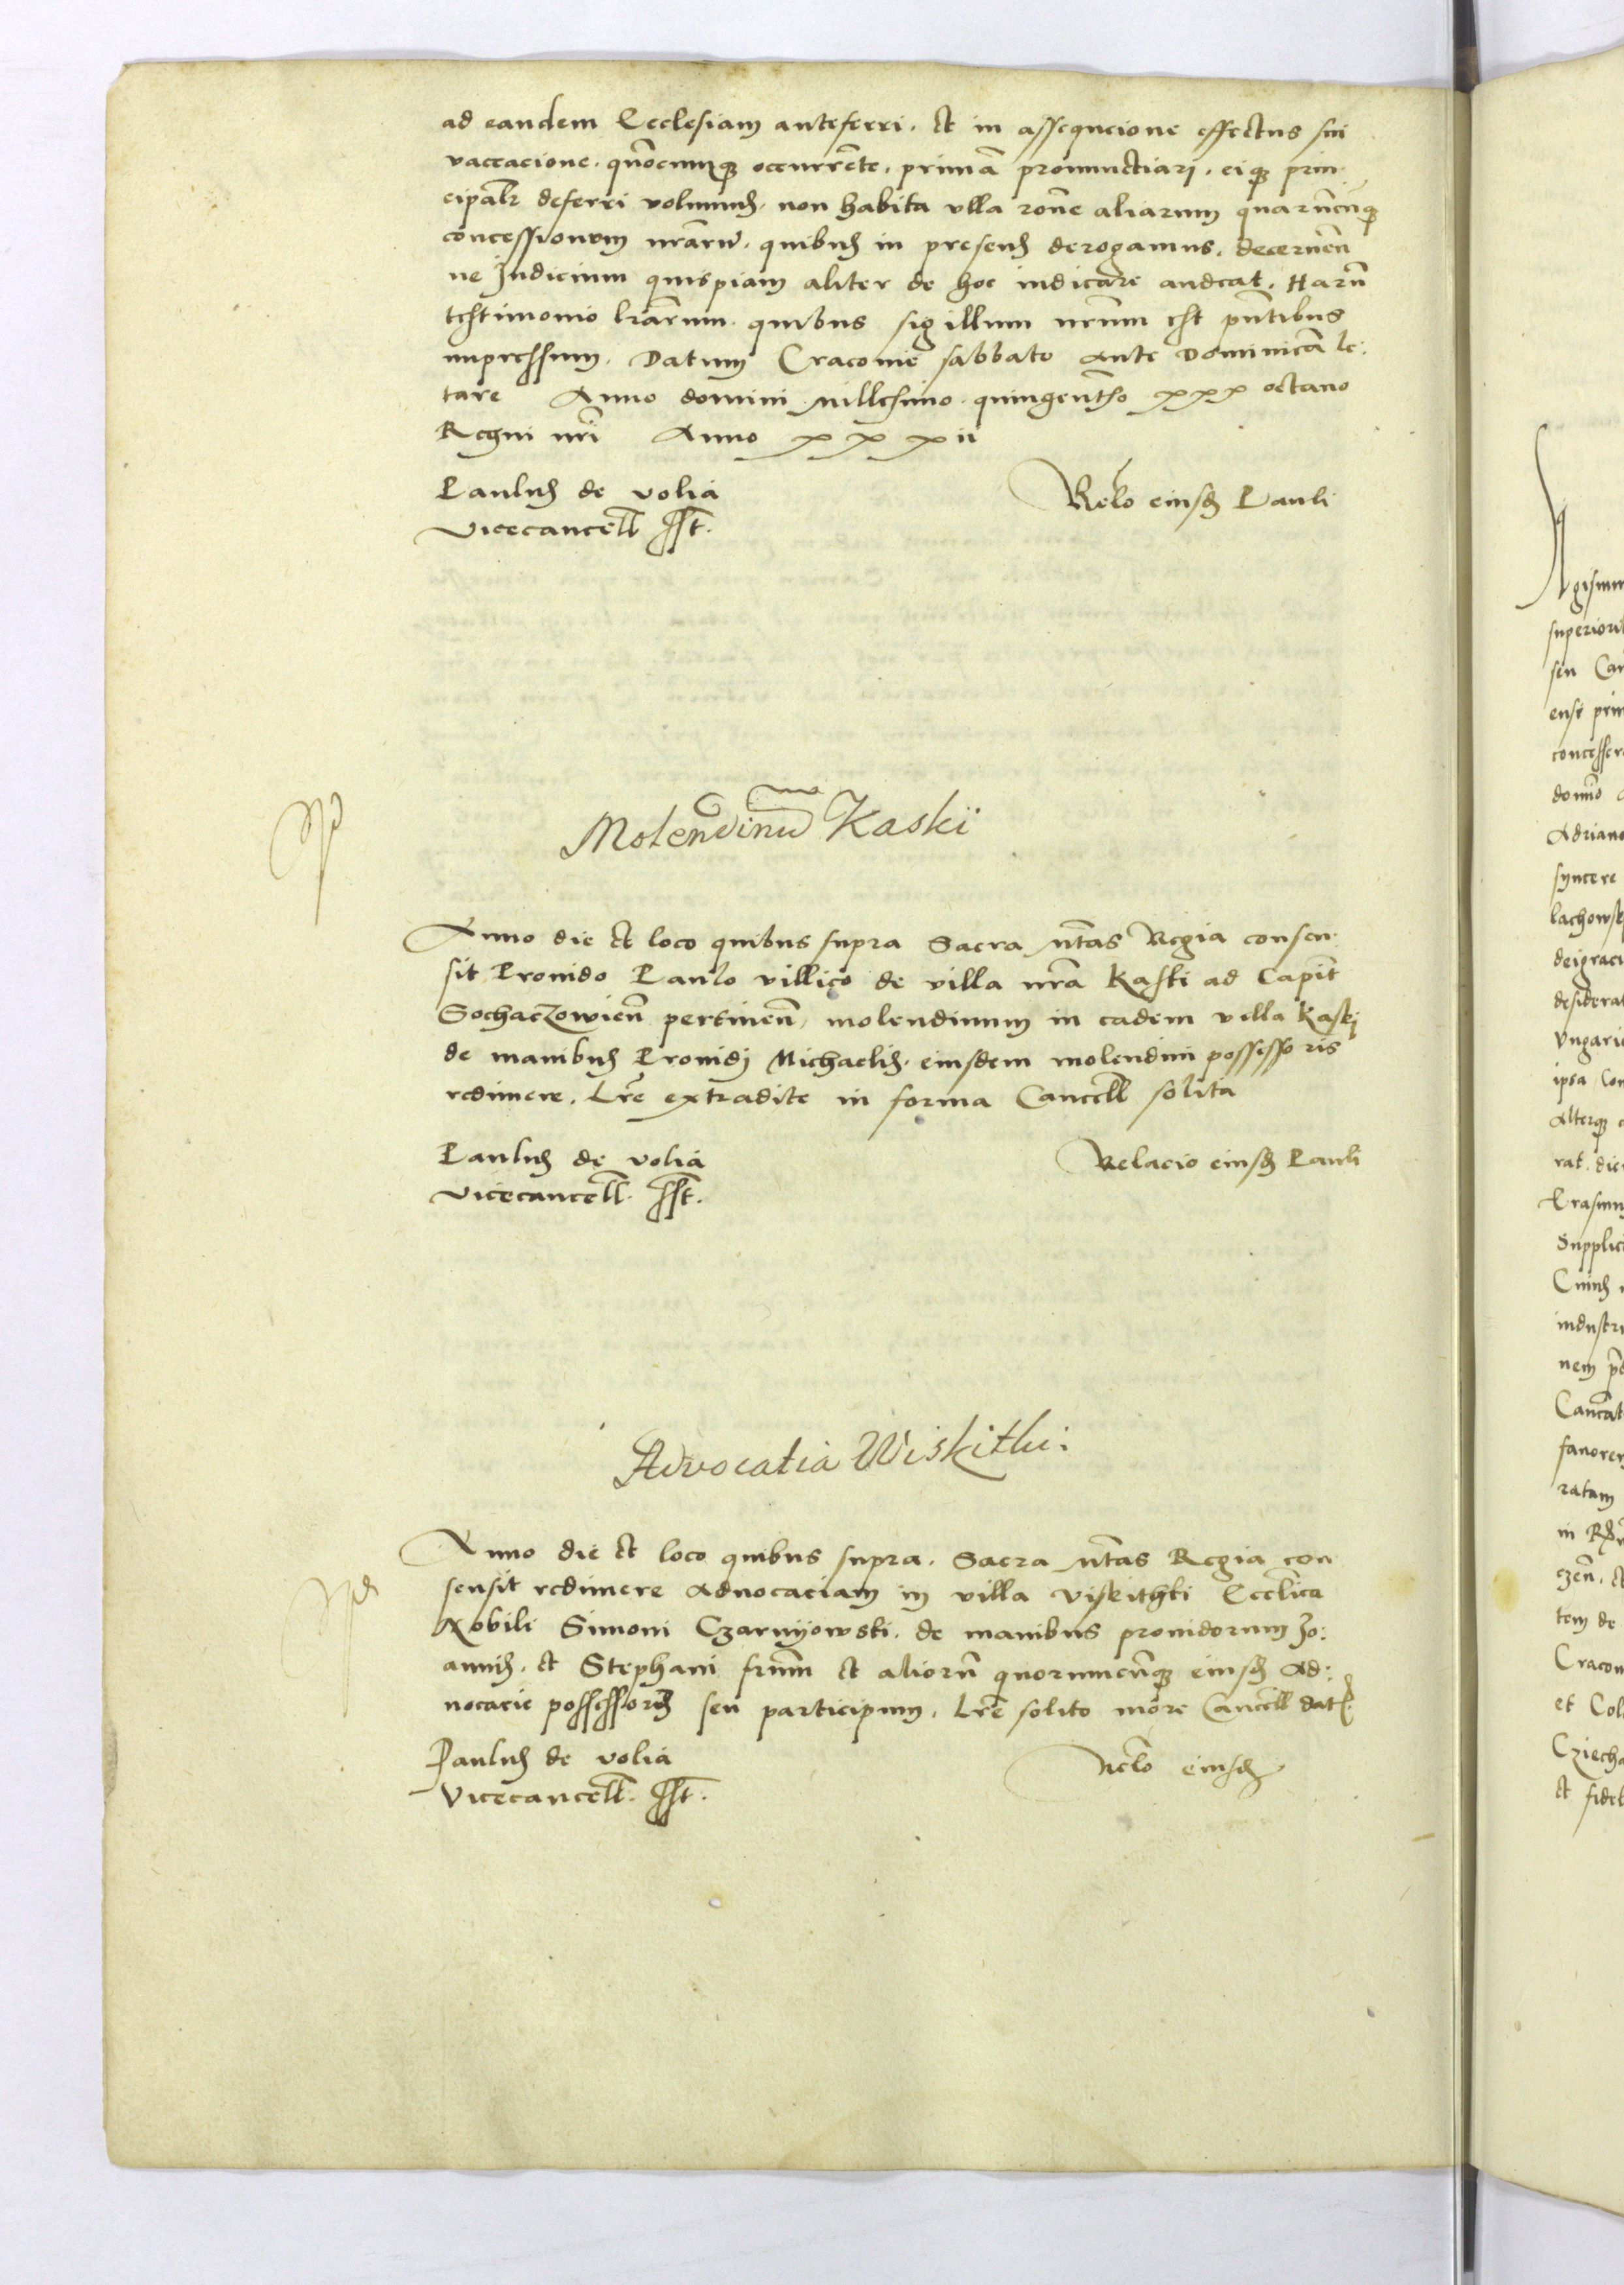 ad eandem Ecclesiam anteferri. et in assequcione effectus sui
vaccacione. qn̄ocumq; occurrēte. primā pronunctiari. eiq; prin
cipalr̄ deferri volumus. non habita vlla rōne aliarum quarūcūq;
concessionum nr̄arū. quibus in presens derogamus. decernēn
ne Judicium quispiam aliter de hoc iudicare audeat. Harū
testimonio lr̄arum. quibus sigillum nr̄um est pn̄tibus
impressum. Datum Cracouie sabbato ante Dominicā le:
tare Anno domini millesimo. quingentēso xxx octauo
Regni nr̄i Anno xxxii
Paulus de volia
vicecancell̄ sst.
Relō eiusd Pauli
Molendinū Kaski
Anno die et loco quibus supra Sacra Mt̄as Regia consen
sit Prouido Paulo villico de villa nr̄a Kaski ad Capit̄
Sochaczowień pertineñ, molendinum in eadem villa Kaski
de manibus Prouidj Michaelis. eiusdem molendini possessoris
redimere. Lr̄e extradite in forma Cancell̄ solita
Paulus de volia
vicecancell̄. sst.
Relacio eiusd Pauli
Advocatia Wiskitki:
Anno die et loco quibus supra. Sacra Mt̄as Regia con
sensit redimere Aduocaciam in villa viskithki
Nobili Simoni Czarnijowski. de manibus prouidorum Jo:
annis. et Stephani frūm et aliorū quorumcūq; eiusd Ad:
uocacie possessorū seu participum. Lr̄e solito more Cancell̄ dat
Paulus de volia
Vicecancell̄. sst.
Relō eiusd
superiori
sen
ense
domō
Adriano
syncere
lachowsk
deigraci
desiderat
Vngarie
ipsa
rat. die
Erasmu
Supplic
Cuius
industri
nem
fauorem
ratam
in
tem de
Cracou
et Col
et fidel